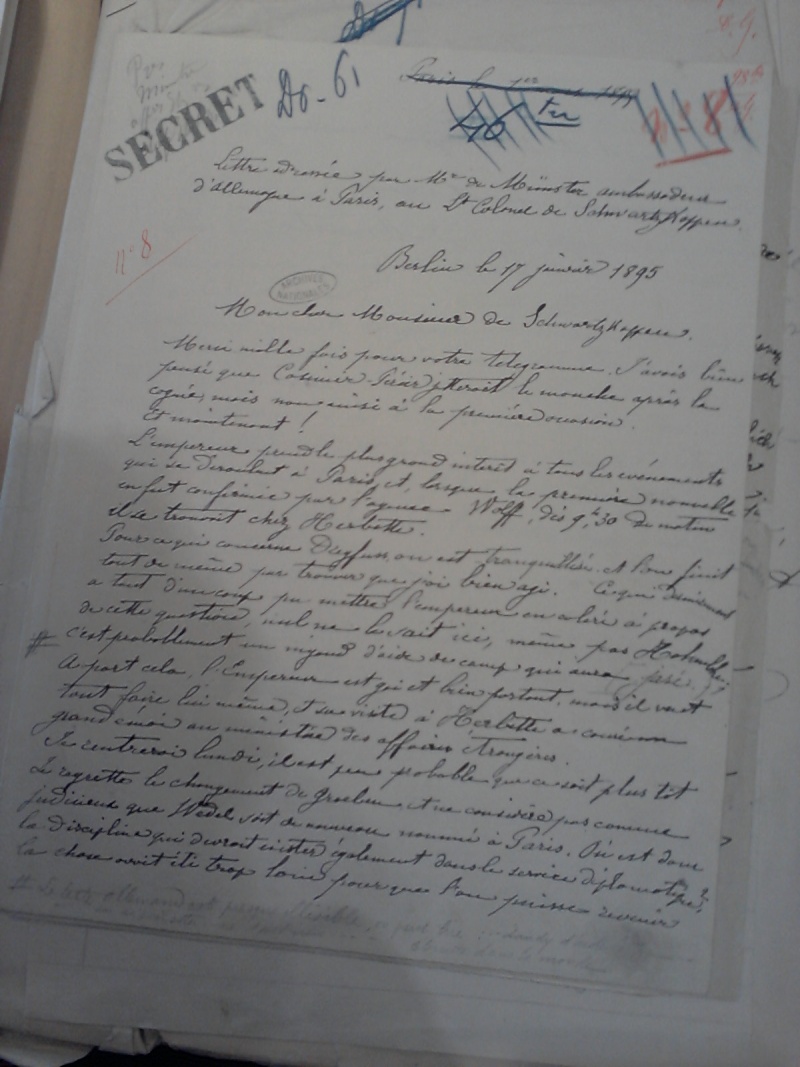 SECRET
Do-61
Paris le 1er 1895
40 ter
n° 8
Lettre adressée par Mr de Münster ambassadeur
d'Allemagne à Paris, au Lt Colonel de Schwartzkoppen.
Berlin le 17 janvier 1895
ARCHIVES NATIONALES
Mon cher Monsieur de Schwartzkoppen.
Merci mille fois pour votre telegramme. J'avais bien
pensé que Casimir-Périer jetterait le manche après la
cognée, mais non ainsi à la première occasion.
Et maintenant !
L'empereur prend le plus grand intérêt à tous les événements
qui se déroulent à Paris et, lorsque la première nouvelle
en fut confirmée par l'agence Wolff, dès 9h,30 du matin
il se trouvait chez Herbette.
Pour ce qui concerne Dreyfus, on est tranquillisé et l'on finit
tout de même par trouver que j'ai bien agi. Ce qui
a tout d'un coup pu mettre l'empereur en colère à propos
de cette question, nul ne le sait ici, même pas Hohenlohe;
# c'est probablement un d'aide de camp qui aura
A part cela, l'Empereur est gai et bien portant, mais il veut
tout faire lui même, et sa visite à Herbette a causé un
grand émoi au ministère des affaires étrangères.
Je rentrerai lundi, il est peu probable que ce soit plus tôt
Je regrette le changement de et ne considère pas comme
judicieux que Wedel soit de nouveau nommé à Paris. Où est donc
la discipline qui devrait exister également dans le service diplomatique?
la chose avait été trop loin pour que l'on puisse revenir
# Le texte allemand est